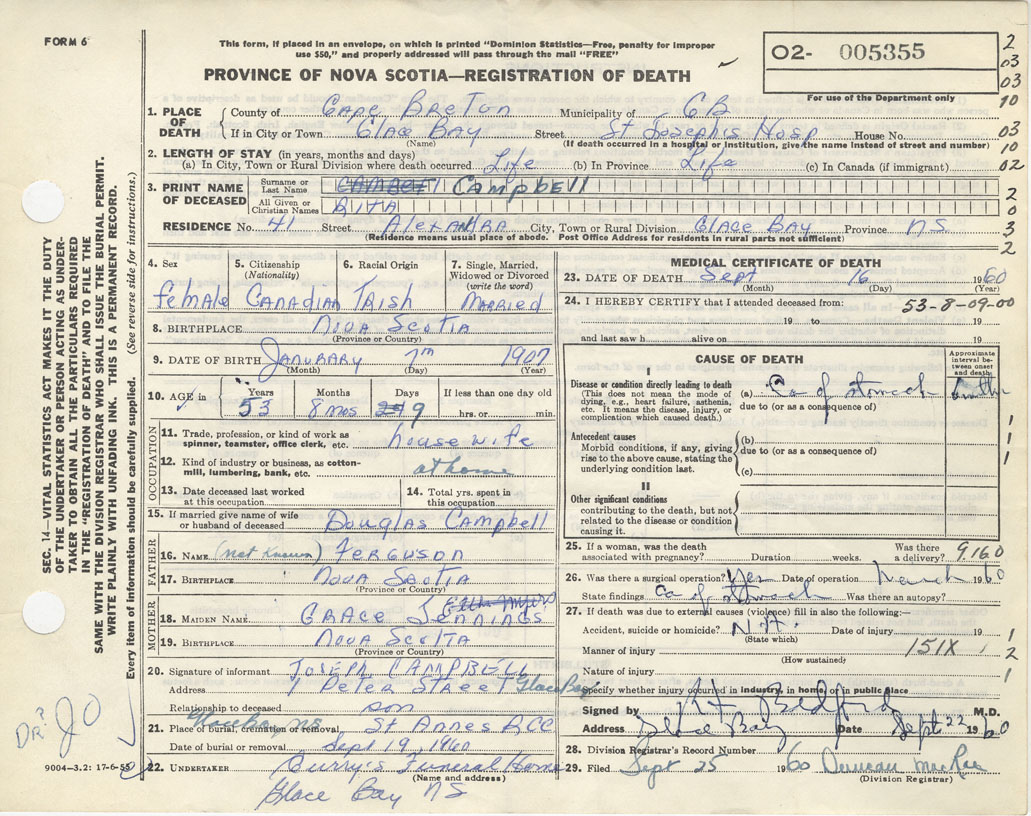 FORM 6
This form, if placed in an envelope, on which is printed "Dominion Statistics—Free, penalty for improper
use $50," and properly addressed will pass through the mail "FREE"
O2- 005355
For use of the Department only
PROVINCE OF NOVA SCOTIA—REGISTRATION OF DEATH
2
03
03
10
03
10
02
2
0
3
2
1. PLACE OF DEATH { County of Cape Breton Municipality of CB
If in City or Town Glace Bay Street St Josephs Hosp House No.
(Name) (If death occurred in a hospital or Institution, give the name instead of street and number)
2. LENGTH OF STAY (in years, months and days)
(a) In City, Town or Rural Division where death occurred Life (b) In Province Life (c) In Canada (if immigrant)
3. PRINT NAME OF DECEASED { Surname or Last Name Campbell
All Given or Christian Names RITA
RESIDENCE No. 41 Street AlexanRA City, Town or Rural Division GLACE BAY Province NS
(Residence means usual place of abode. Post Office Address for residents in rural parts not sufficient)
4. Sex 5. Citizenship (Nationality) 6. Racial Origin 7. Single, Married, Widowed or Divorced (write the word)
female CANADIAN IRISH MARRIED
8. BIRTHPLACE NOVA SCOTIA
(Province or Country)
9. DATE OF BIRTH JANURARY 7TH 1907
(Month) (Day) (Year)
10. AGE in Years Months Days If less than one day old
53 8 mos 9 hrs. or min.
OCCUPATION
11. Trade, profession, or kind of work as spinner, teamster, office clerk, etc. house wife
12. Kind of industry or business, as cotton-mill, lumbering, bank, etc. at home
13. Date deceased last worked at this occupation
14. Total yrs. spent in this occupation
15. If married give name of wife or husband of deceased Douglas Campbell
FATHER
16. NAME (not Known) FERGUSON
17. BIRTHPLACE NOVA SCOTIA
(Province or Country)
MOTHER
18. MAIDEN NAME GRACE JENNINGS
19. BIRTHPLACE NOVA SCOITA
(Province or Country)
20. Signature of informant JOSEPH CAMPBELL
Address 7 PETER STREET Glace Bay
Relationship to deceased son
Glace Bay ns
21. Place of burial, cremation or removal St Annes RCC
Date of burial or removal Sept 19, 1960
22. UNDERTAKER Curry's Funeral Home
(Name and address)
Glace Bay NS
MEDICAL CERTIFICATE OF DEATH
23. DATE OF DEATH Sept 16 1960
(Month) (Day) (Year)
24. I HEREBY CERTIFY that I attended deceased from: 53-8-09-00
19 to 19
and last saw h alive on 19
CAUSE OF DEATH
Approximate interval between onset and death
I
Disease or condition directly leading to death
(This does not mean the mode of dying, e.g., heart failure, asthenia, etc. It means the disease, injury, or complication which caused death.)
(a) Ca of stomach
due to (or as a consequence of)
Antecedent causes
Morbid conditions, if any, giving rise to the above cause, stating the underlying condition last.
(b)
due to (or as a consequence of)
(c)
II
Other significant conditions contributing to the death, but not related to the disease or condition causing it.
1
1
1
25. If a woman, was the death associated with pregnancy? Duration weeks. Was there a delivery? 9.160
26. Was there a surgical operation? Yes Date of operation March 1960
State findings Ca of stomach Was there an autopsy?
27. If death was due to external causes (violence) fill in also the following:—
Accident, suicide or homicide? N.A. Date of injury 19 1
(State which)
Manner of injury 151X 2
(How sustained)
Nature of injury 1
Specify whether injury occurred in industry, in home, or in public place
Signed by Bedford M.D.
Address Glace Bay Date Sept 22 1960
28. Division Registrar's Record Number
29. Filed Sept 25 1960 Duncan MacRae
(Division Registrar)
SEC. 14—VITAL STATISTICS ACT MAKES IT THE DUTY
OF THE UNDERTAKER OR PERSON ACTING AS UNDER-
TAKER TO OBTAIN ALL THE PARTICULARS REQUIRED
IN THE "REGISTRATION OF DEATH" AND TO FILE THE
SAME WITH THE DIVISION REGISTRAR WHO SHALL ISSUE THE BURIAL PERMIT.
WRITE PLAINLY WITH UNFADING INK. THIS IS A PERMANENT RECORD.
Every item of information should be carefully supplied. (See reverse side for instructions.)
DR? JO
9004—3.2: 17-6-55